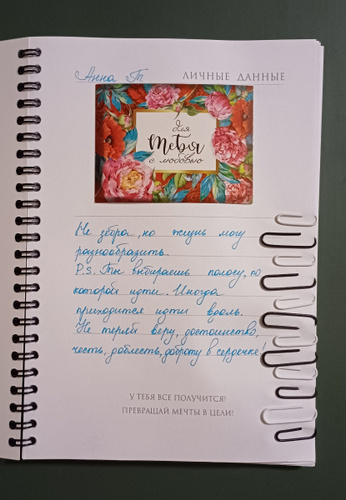 Анна Т
ЛИЧНЫЕ ДАННЫЕ
для
Тебя
с любовью
Не зебра, но жизнь могу
разнообразить.
P.S. Ты выбираешь полосу, по
которой идти. Иногда
приходится идти вдоль.
Не теряй веру, достоинство,
честь, доблесть, доброту в сердечке!
У ТЕБЯ ВСЕ ПОЛУЧИТСЯ!
ПРЕВРАЩАЙ МЕЧТЫ В ЦЕЛИ!